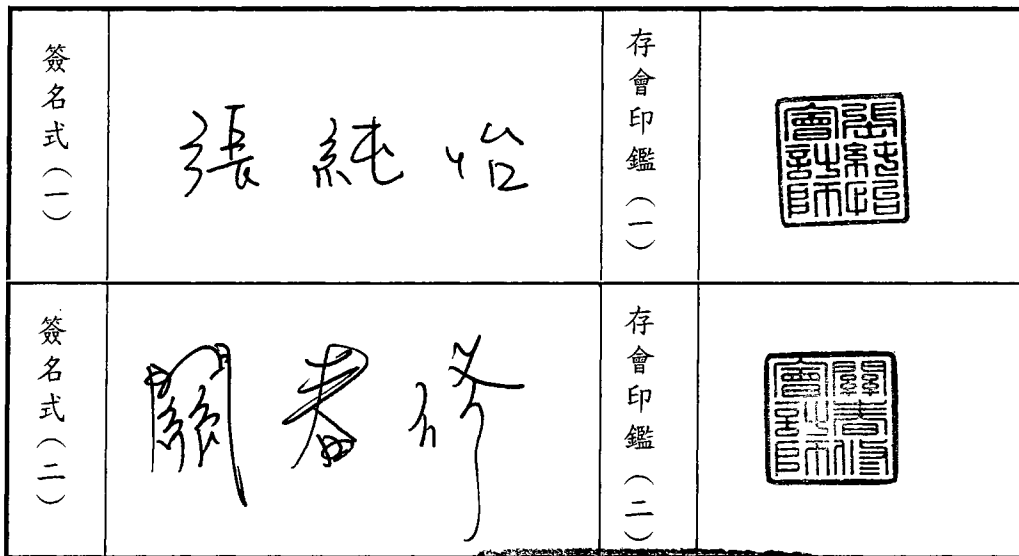 簽名式(一)
張純怡
存會印鑑(一)
張純怡會計師
簽名式(二)
關春修
存會印鑑(二)
關春修會計師